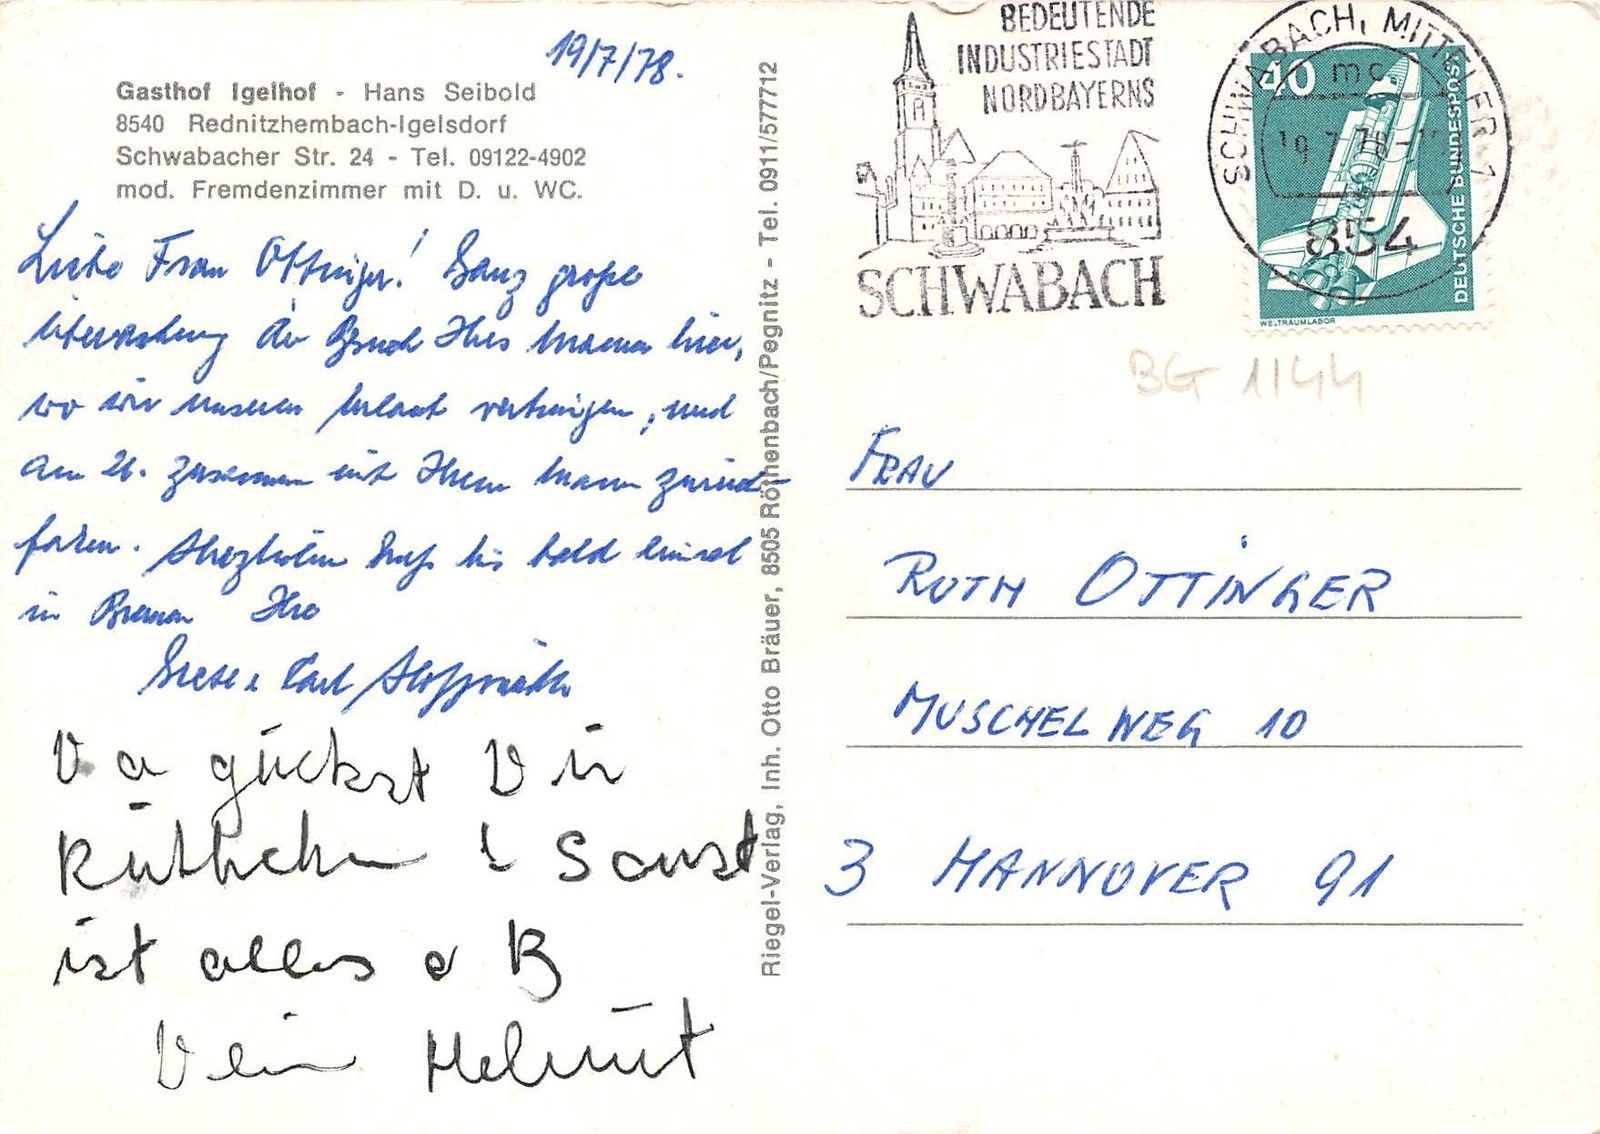 19/7/78.
Gasthof Igelhof - Hans Seibold
8540 Rednitzhembach-Igelsdorf
Schwabacher Str. 24 - Tel. 09122-4902
mod. Fremdenzimmer mit D. u. WC.
Liebe Frau Ottinger! Ganz große
Überraschung der Besuch Ihres Mannes hier,
wo wir unseren Urlaub verbringen, und
am 26. zusammen mit Ihrem Mann zurück-
fahren. Herzlichen Gruß bis bald einmal
in Ihre
& Karl
Da guckst Du
Rüthchen! Sonst
ist alles o B
Dein Helmut
Riegel-Verlag, Inh. Otto Bräuer, 8505 Röthenbach/Pegnitz - Tel. 0911/577712
BEDEUTENDE
INDUSTRIESTADT
NORDBAYERNS
SCHWABACH
SCHWABACH, MITTELFR 1
mc
19.7.78
854
40
DEUTSCHE BUNDESPOST
WELTRAUMLABOR
BG 1144
FRAU
RUTH OTTINGER
MUSCHELWEG 10
3 HANNOVER 91